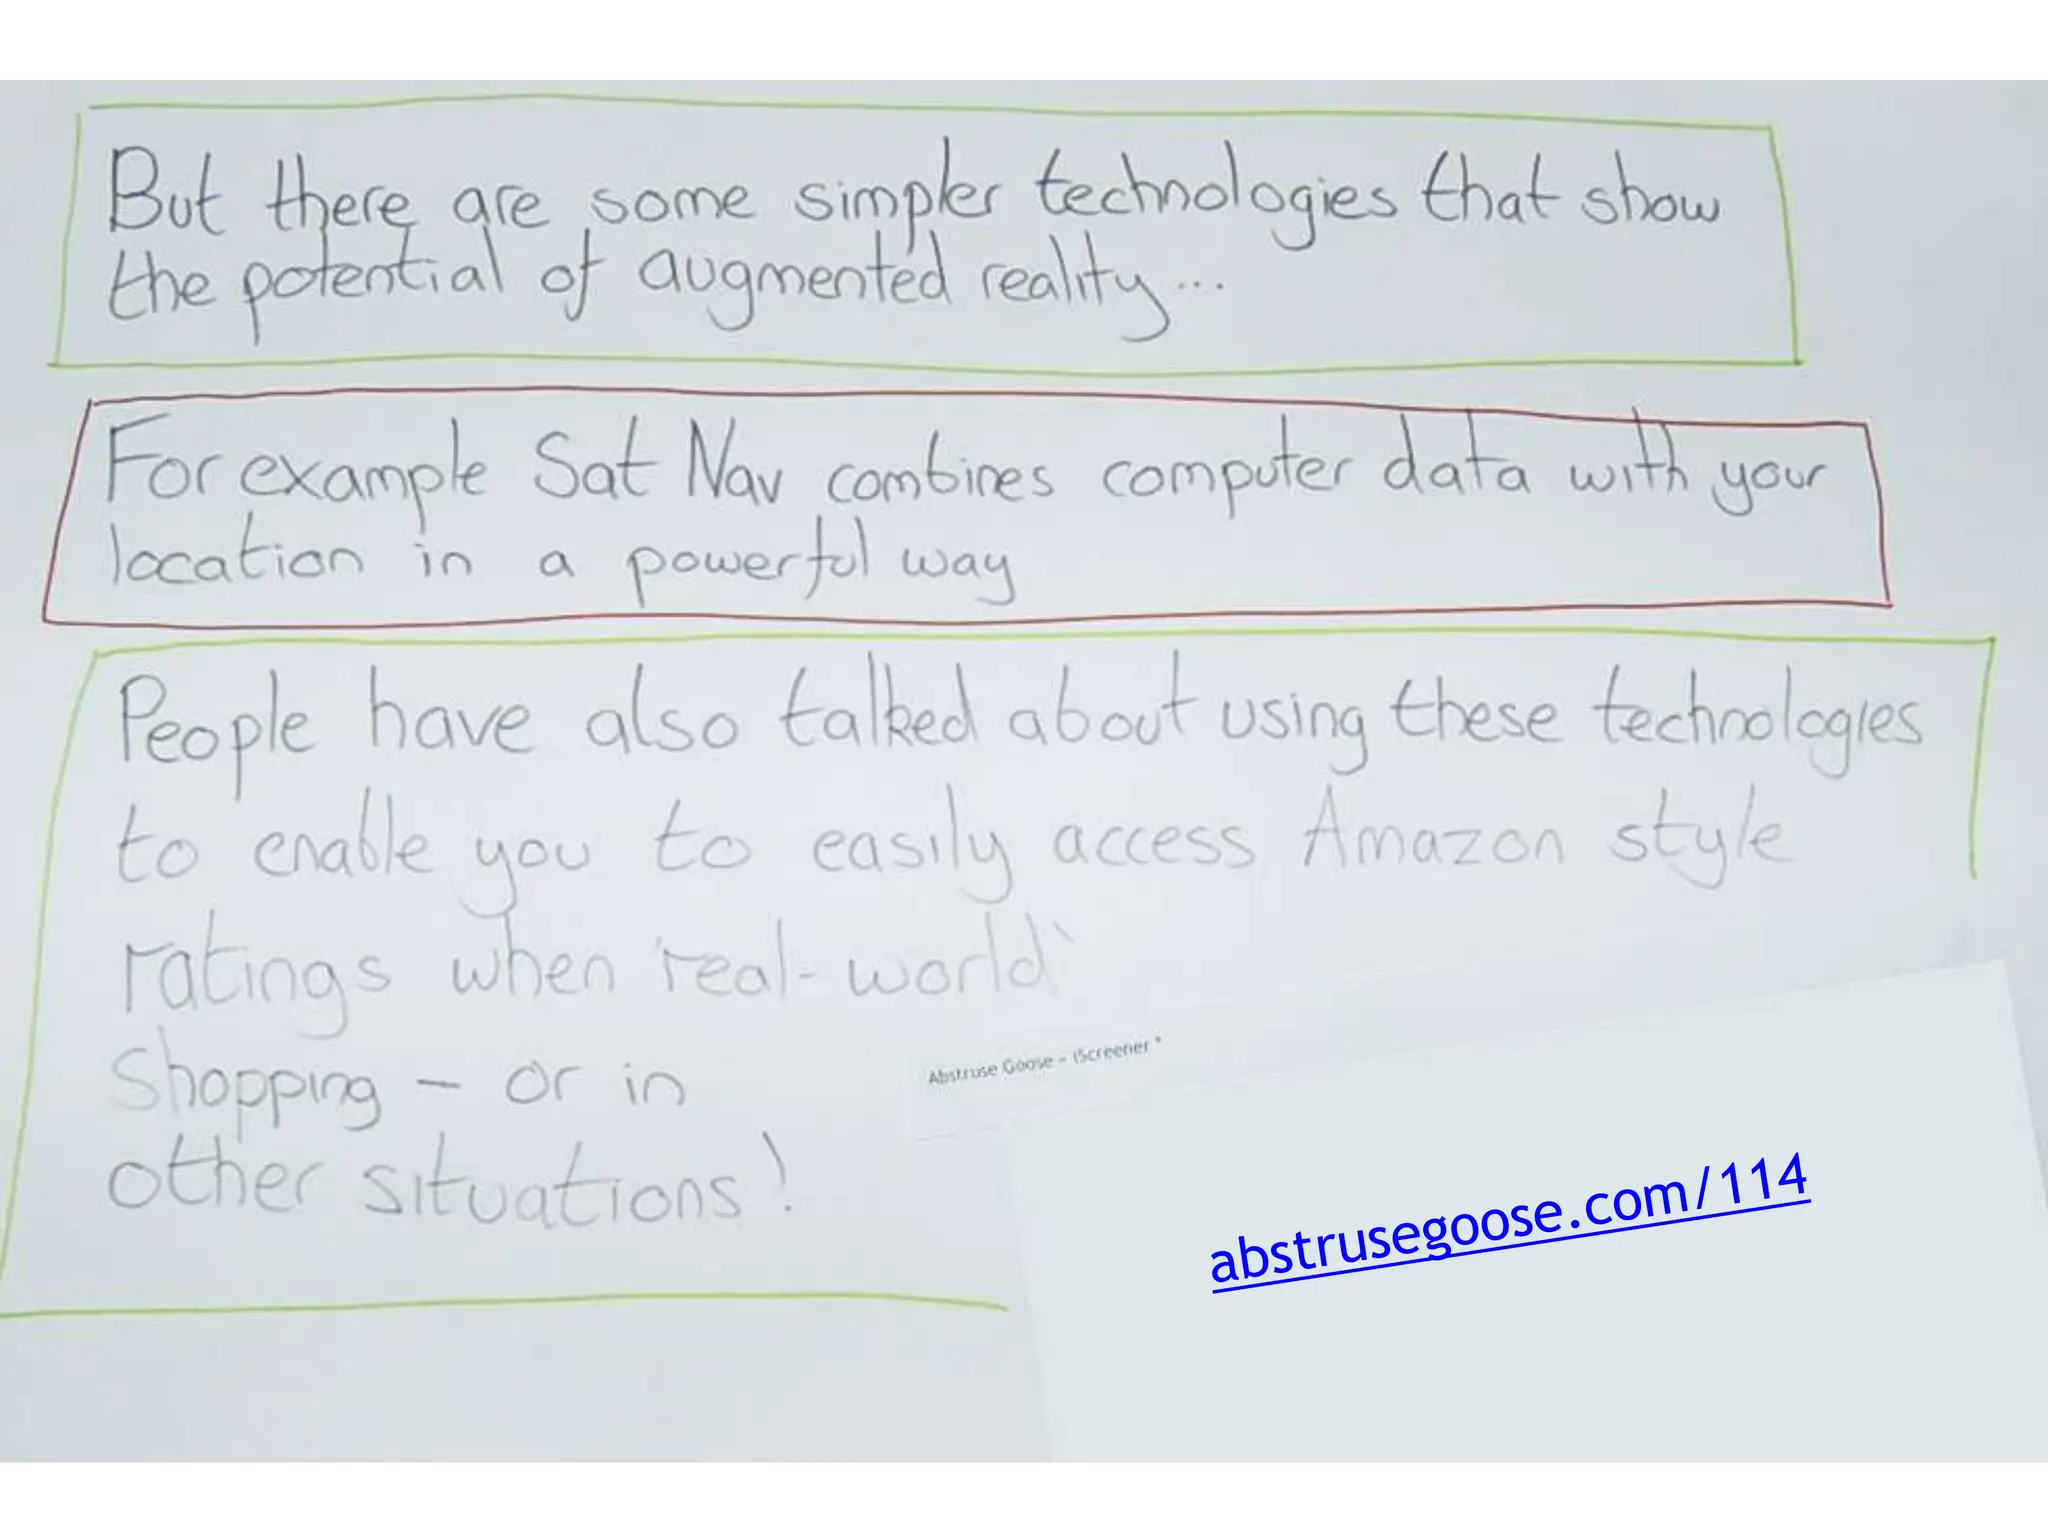 But there are some simpler technologies that show
the potential of augmented reality...
For example Sat Nav combines computer data with your
location in a powerful way
People have also talked about using these technologies
to enable you to easily access Amazon style
ratings when 'real-world'
shopping - or in
other situations!
Abstruse Goose - iScreener *
abstrusegoose.com/114